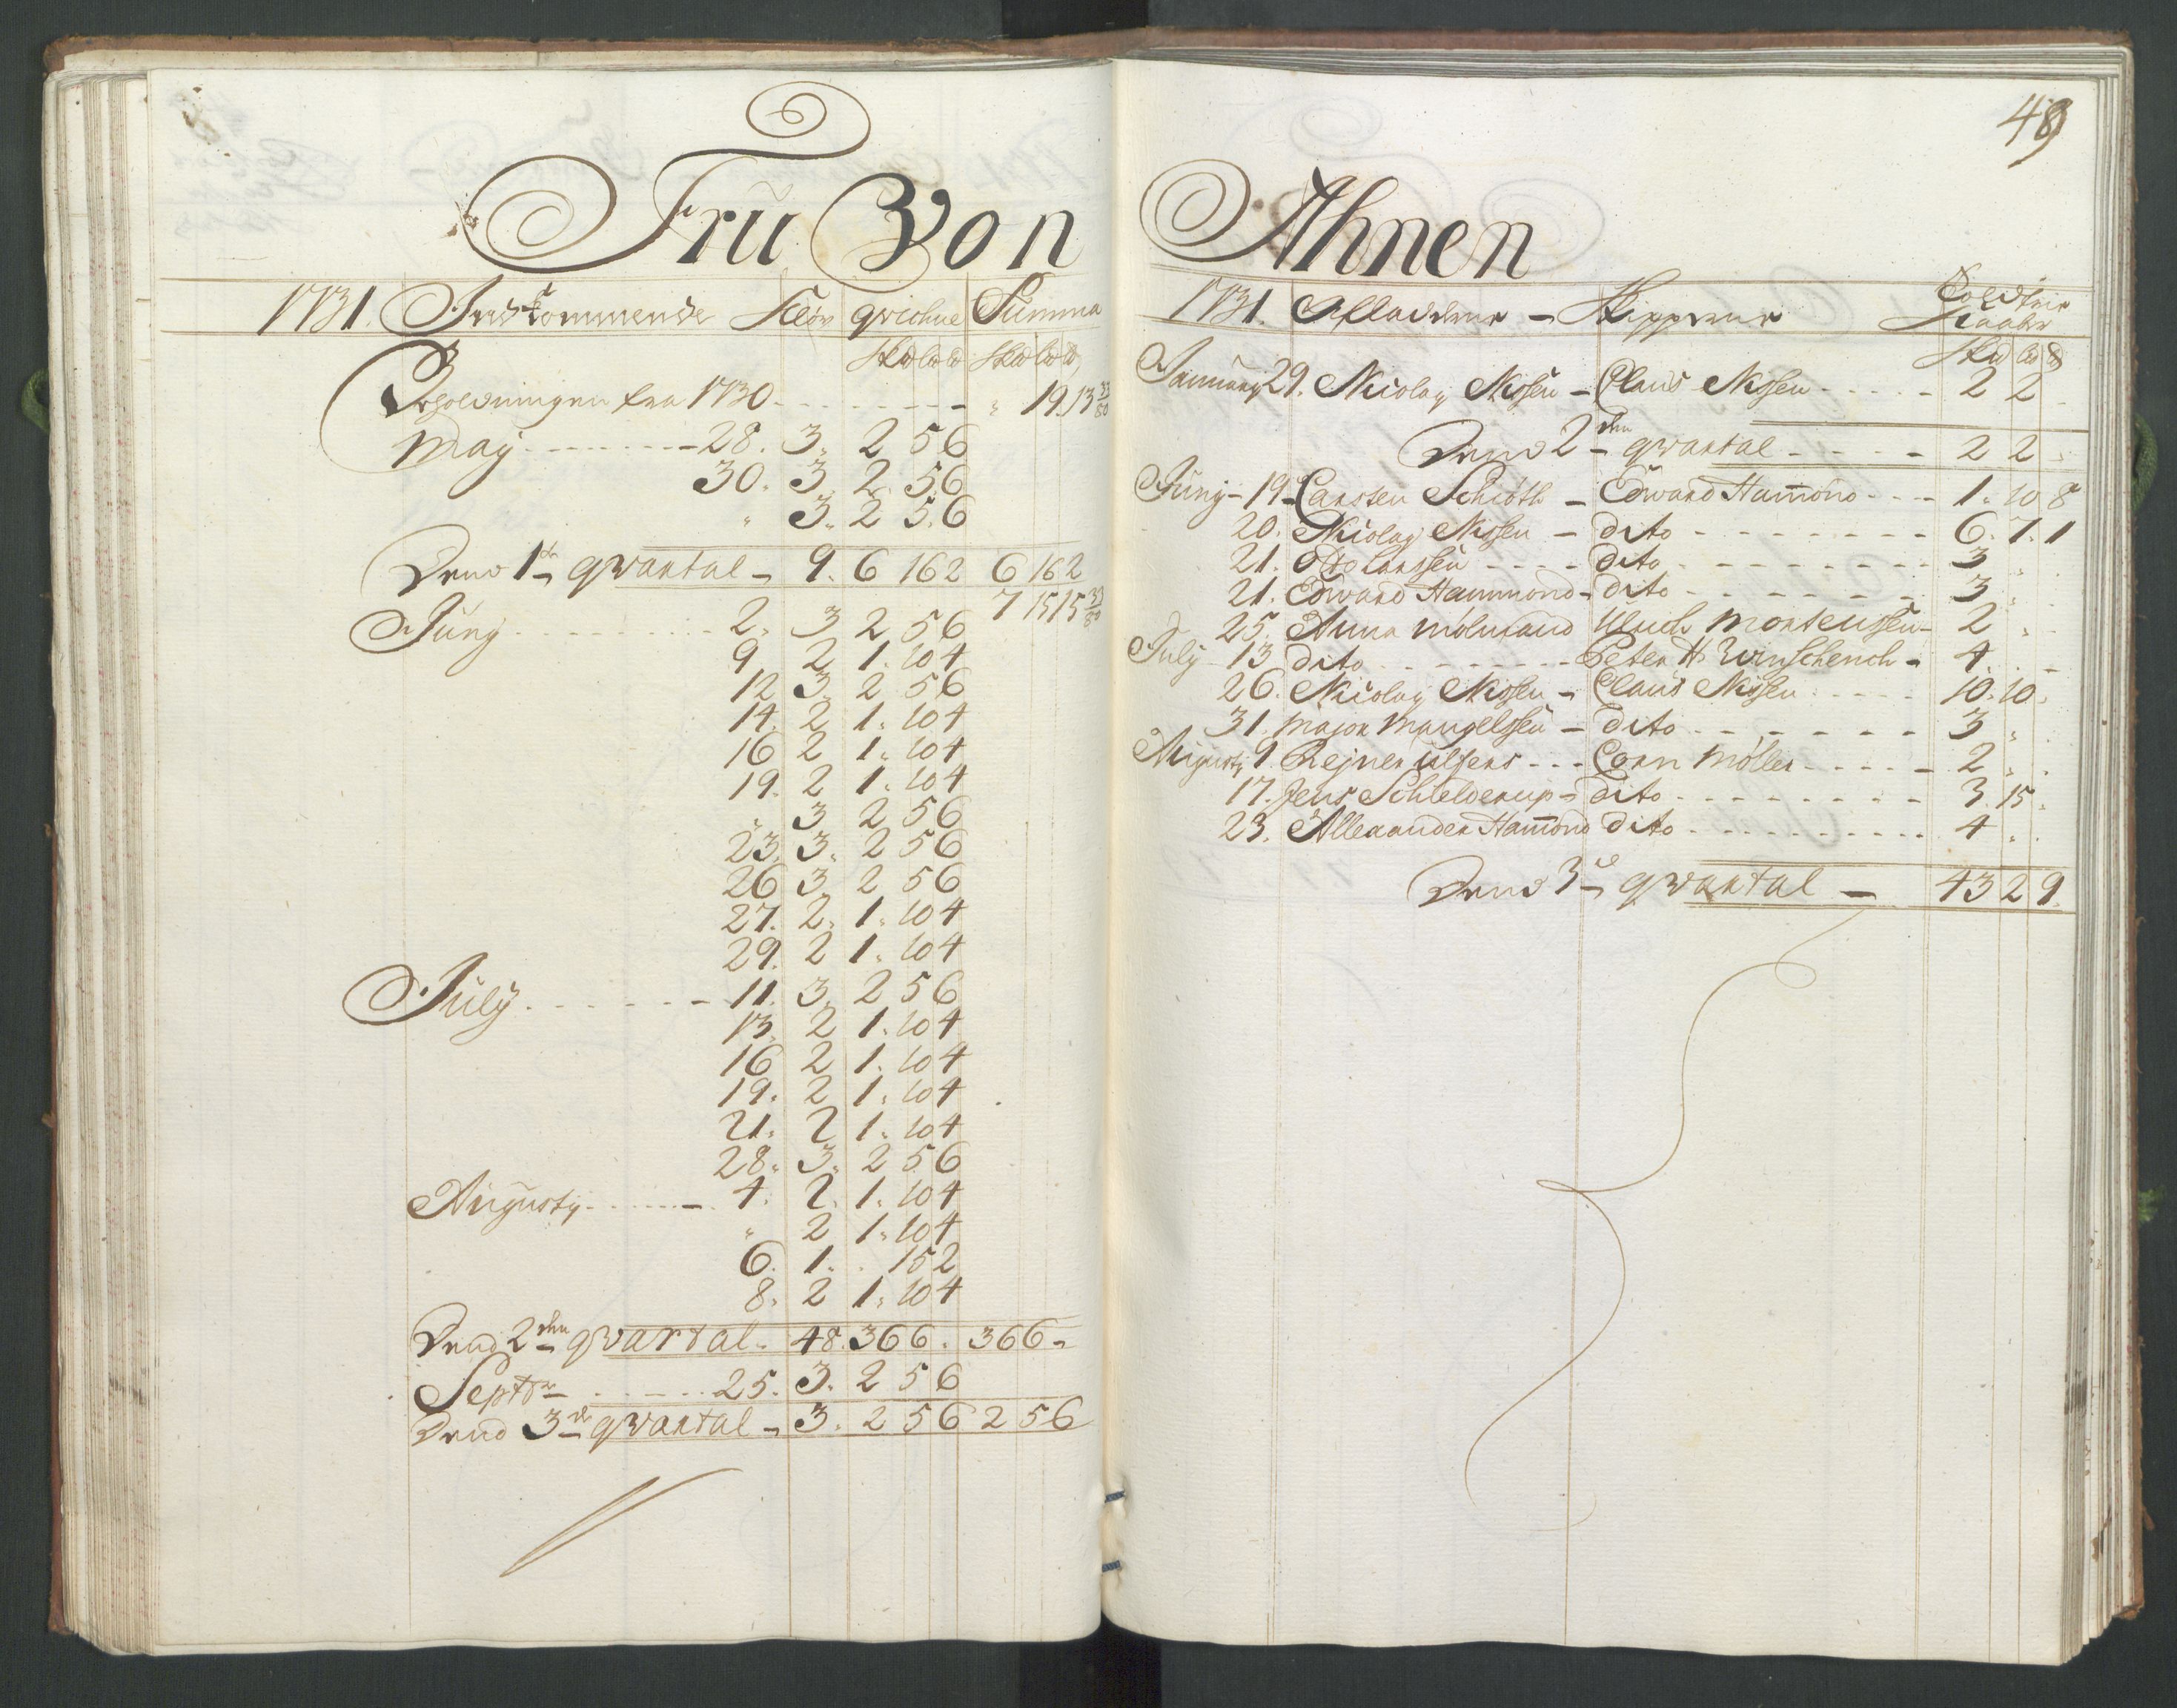 Fru Von
1731. Indkommende Kleør qvichue Summa
Skd lod lb Skd lod lb
Beholdningen fra 1730 - - - - „ 19. 13 33/80
May - - - 28. 3. 2 5 6
30. 3 2 5 6
„ 3. 2 5. 6
Dend 1te qvartal - 9. 6 16 2 6 16 2
7 15 15 33/80
Juny - - - 2. 3 2 5 6
9 2 1. 10 4
12 3. 2 5 6
14. 2 1. 10 4
16 2 1. 10 4
19. 2 1. 10 4
„ 3 2 5 6
23. 3. 2 5 6
26 3. 2 5 6
27. 2. 1. 10 4
29. 2 1. 10 4
July - - - 11. 3. 2 5 6
13. 2 1. 10 4
16 2 1. 10 4
19. 2 1. 10 4
21. 2 1. 10 4
28. 3. 2 5 6
Augusty - - - 4. 2. 1. 10 4
„ 2 1. 10 4
6. 1. . 15 2
8. 2 1. 10 4
Dend 2den qvartal - 48. 36 6 . 36 6 -
Septbr - - - 25. 3. 2 5 6
Dend 3de qvartal - 3. 2 5 6 2 5 6
49
Ahnen
1731. Afladerne - Skipperne
Skd lod lb
January 29. Nicolay Nissen - Claus Nissen - - - 2 2
Dend 2den qvartal - - - 2 2
Juny - 19 - Carsten Schiøth - Edward Hamond - - - 1. 10 8
20. Nicolay Nissen - dito - - - 6. 7. 1
21. Otto Larssen - - - dito - - - 3 „
21. Edward Hammond - dito - - - 3 „
25. Anna Molmand Ulrich Mortenssen - 2 „
July - 13 dito - - - Peter H. Winschench - 4. . -
26. Nicolay Nissen - Claus Nissen - - - 10. 10.
31. Major Mangelssen - dito - - - 3 „
Augusty 9. Rejner Ulfsers - - - Corn Møller - - - 2 „
17. Jens Schielderup - dito - - - 3. 15.
23. Allexander Hamond dito - - - 4 „
Dend 3de qvartal - 43 2 9.